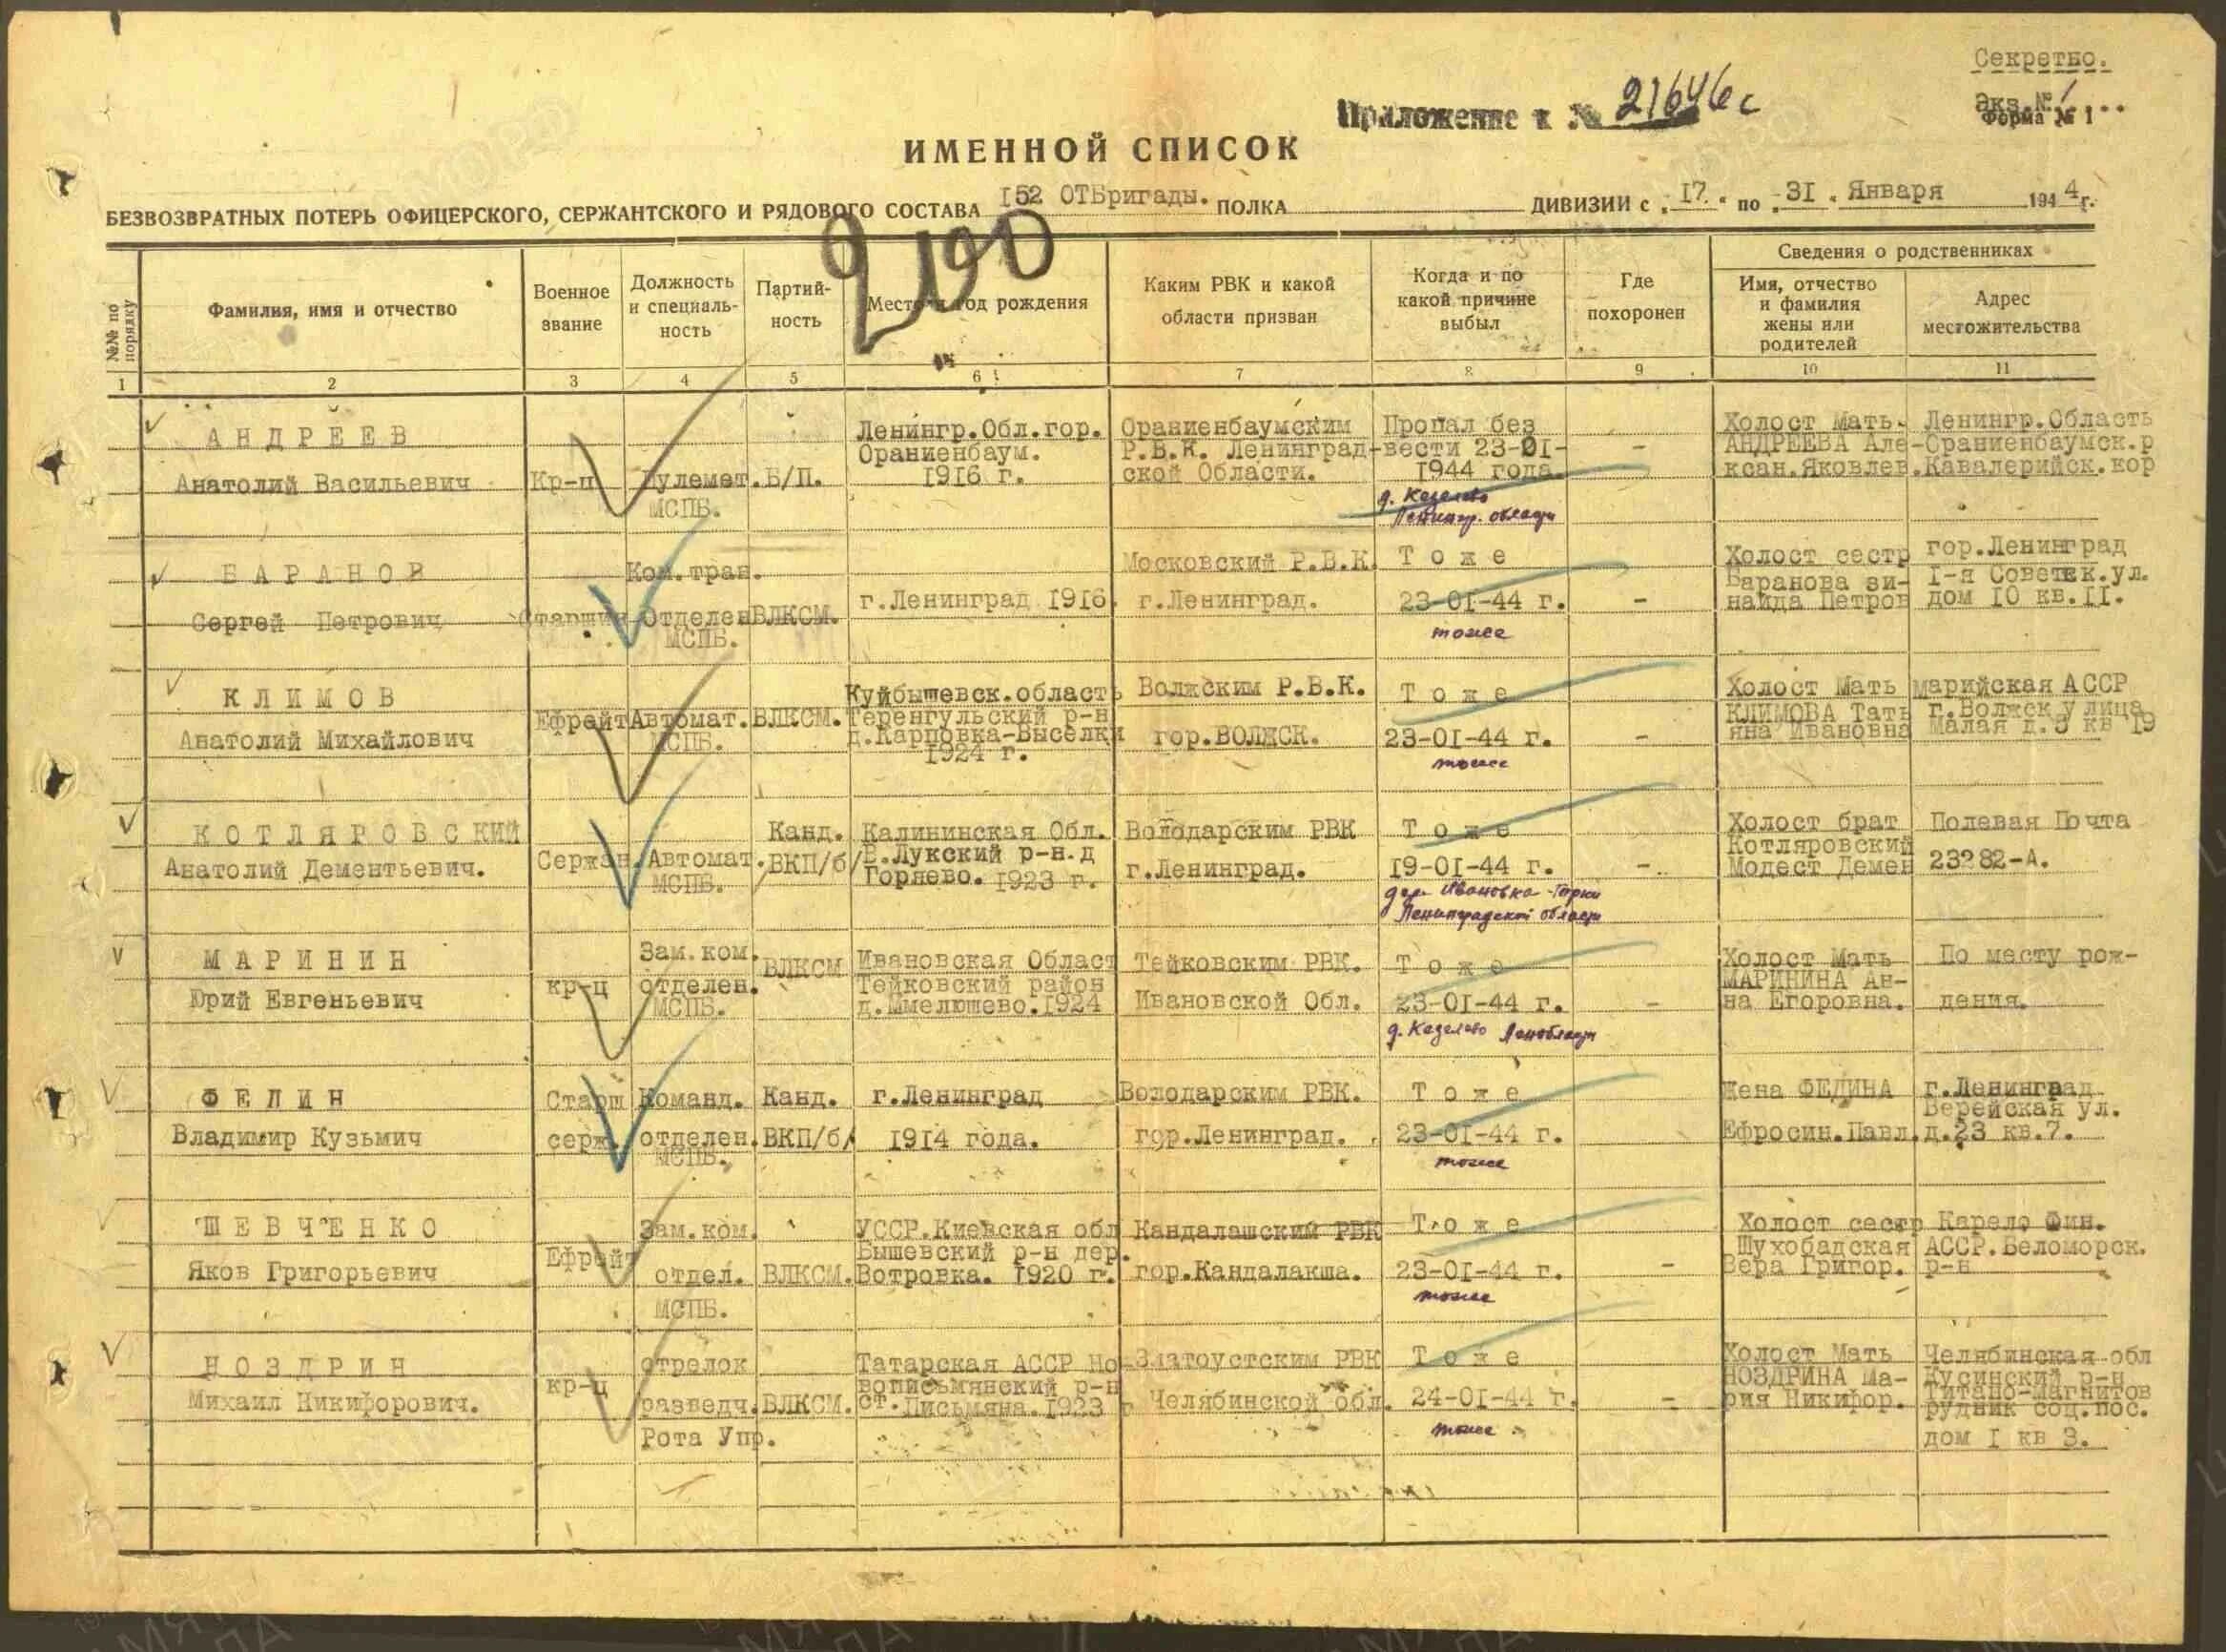 Секретно.
Приложение к № 21646с
Экз.№ 1
Форма № 1
ИМЕННОЙ СПИСОК
БЕЗВОЗВРАТНЫХ ПОТЕРЬ ОФИЦЕРСКОГО, СЕРЖАНТСКОГО И РЯДОВОГО СОСТАВА I52 ОТБригады. ПОЛКА ДИВИЗИИ с „I7.“ по „3I“ Января 1944г.
№№ по порядку
Фамилия, имя и отчество
Военное звание
Должность и специаль-
ность
Партий-
ность
Место и год рождения
Каким РВК и какой
области призван
Когда и по
какой причине
выбыл
Где
похоронен
Сведения о родственниках
Имя, отчество
и фамилия
жены или
родителей
Адрес
местожительства
1 2 3 4 5 6 7 8 9 10 11
АНДРЕЕВ
Анатолий Васильевич
Кр-ц
Пулемет.
МСПБ.
Б/П.
Ленингр.Обл.гор.
Ораниенбаум.
1916 г.
Ораниенбаумским
Р.В.К. Ленинград-
ской Области.
Пропал без
вести 23-0I-
1944 года.
д. Кезелево
Ленингр. области
-
Холост Мать
АНДРЕЕВА Але-
ксан.Яковлев.
Ленингр.Область
Ораниенбаумск.р
Кавалерийск.кор
БАРАНОВ
Сергей Петрович
Старшин
Ком.тран.
Отделен
МСПБ.
ВЛКСМ.
г.Ленинград I916
Московский Р.В.К.
г.Ленинград.
Тоже
23-0I-44 г.
тоже
-
Холост сестр
Баранова зи-
наида Петров
гор.Ленинград
I-я Советск.ул.
дом IO кв.II.
КЛИМОВ
Анатолий Михайлович
Ефрейт
Автомат.
МСПБ.
ВЛКСМ.
Куйбышевск.область
Теренгульский р-н
д.Карповка-Выселки
I924 г.
Волжским Р.В.К.
гор.ВОЛЖСК.
Тоже
23-0I-44 г.
тоже
-
Холост Мать
КЛИМОВА Тать
яна Ивановна
марийская АССР
г.Волжск улица
Малая д.3 кв 19
КОТЛЯРОВСКИЙ
Анатолий Дементьевич.
Сержан.
Автомат.
МСПБ.
Канд.
ВКП/б/
Калининская Обл.
В.Лукский р-н.д
Горнево. I923 г.
Володарским РВК
г.Ленинград.
Тоже
I9-0I-44 г.
дер. Ивановка-Горки
Ленинградской области
-
Холост брат
Котляровский
Модест Демен
Полевая Почта
23282-А.
МАРИНИН
Юрий Евгеньевич
кр-ц
Зам.ком.
отделен.
МСПБ.
ВЛКСМ
Ивановская Област
Тейковский район
I924
Тейковским РВК.
Ивановской Обл.
Тоже
23-0I-44 г.
д. Кезелево Ленобласти
-
Холост Мать
МАРИНИНА Ан-
на Егоровна.
По месту рож-
дения.
ФЕЛИН
Владимир Кузьмич
Старш
серж.
Команд.
отделен.
МСПБ.
Канд.
ВКП/б/
г.Ленинград
I9I4 года.
Володарским РВК.
гор.Ленинград.
Тоже
23-0I-44 г.
тоже
Жена ФЕДИНА
Ефросин.Павл.
г.Ленинград
Верейская ул.
д.23 кв.7.
ШЕВЧЕНКО
Яков Григорьевич
Ефрейт
Зам.ком.
отдел.
МСПБ.
ВЛКСМ.
УССР.Киевская обл
Бышевский р-н дер.
Вотровка. I920 г.
Кандалашский РВК
гор.Кандалакша.
Тоже
23-0I-44 г.
тоже
-
Холост сестр
Шухобадская
Вера Григор.
Карело Фин.
АССР.Беломорск.
р-н
НОЗДРИН
Михаил Никифорович.
кр-ц
стрелок
разведч.
Рота Упр.
ВЛКСМ.
Татарская АССР Но-
вописьмянский р-н
ст.Письмяна.I923 г
Златоустским РВК
Челябинской обл.
Тоже
24-0I-44 г.
тоже
-
Холост Мать
НОЗДРИНА Ма-
рия Никифор.
Челябинская обл
Кусинский р-н
Титано-Магнитов
рудник соц.пос.
дом I кв 3.